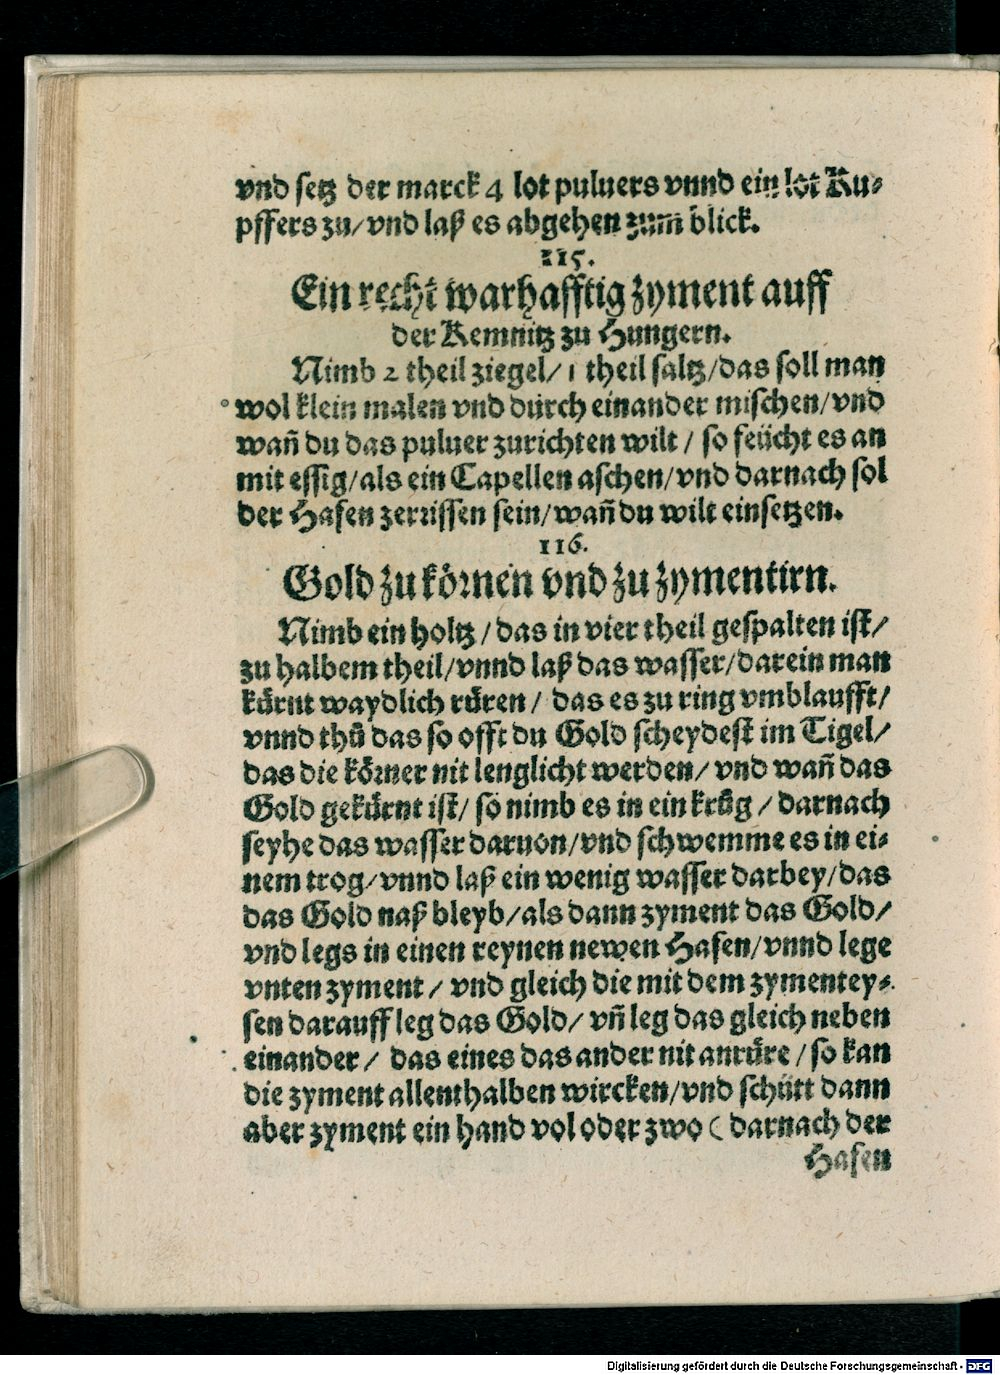 vnd setz der marck 4 lot puluers vnnd ein lot Ku⸗
pffers zu/vnd laß es abgehen zum̃ blick.
115.
Ein recht warhafftig zyment auff
der Kemnitz zu Hungern.
Nimb 2 theil ziegel/1 theil saltz/das soll man
wol klein malen vnd durch einander mischen/vnd
wañ du das puluer zurichten wilt / so feücht es an
mit essig/als ein Capellen aschen/vnd darnach sol
der Hafen zerrissen sein/wañ du wilt einsetzen.
116.
Gold zu körnen vnd zu zymentirn.
Nimb ein holtz / das in vier theil gespalten ist/
zu halbem theil/vnnd laß das wasser/darein man
kürnt waydlich rüren / das es zu ring vmblaufft/
vnnd thů das so offt du Gold scheydest im Tigel/
das die körner nit lenglicht werden/ vnd wañ das
Gold gekürnt ist/ so nimb es in ein krůg / darnach
seyhe das wasser daruon/vnd schwemme es in ei⸗
nem trog/vnnd laß ein wenig wasser darbey/das
das Gold naß bleyb/als dann zyment das Gold/
vnd legs in einen reynen newen Hafen/vnnd lege
vnten zyment / vnd gleich die mit dem zymentey⸗
sen darauff leg das Gold/ vñ leg das gleich neben
einander / das eines das ander nit anrüre / so kan
die zyment allenthalben wircken/vnd schütt dann
aber zyment ein hand vol oder zwo ( darnach der
Hafen
Digitalisierung gefördert durch die Deutsche Forschungsgemeinschaft - DFG